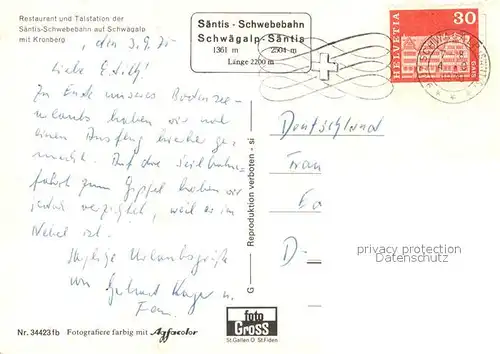 Restaurant und Talstation der
Säntis-Schwebebahn auf Schwägalp
mit Kronberg
den 3.9.75
Liebe Edith!
Zu Ende unseres Bodensee-
urlaubs haben wir noch
einen Ausflug hierher ge-
macht. Auf die Seilbahn-
fahrt zum Gipfel haben wir
jedoch verzichtet, weil er im
Nebel ist.
Herzliche Urlaubsgrüße
von Gerhard u.
Frau.
Nr. 34423fb Fotografiere farbig mit Agfacolor
Säntis - Schwebebahn
Schwägalp - Säntis
1361 m 2504 m
Länge 2200 m
HELVETIA
30
GAIS
G Reproduktion verboten - si
foto
Gross
St.Gallen O St.Fiden
Deutschland
Frau
D-
privacy protection
OldThing.com